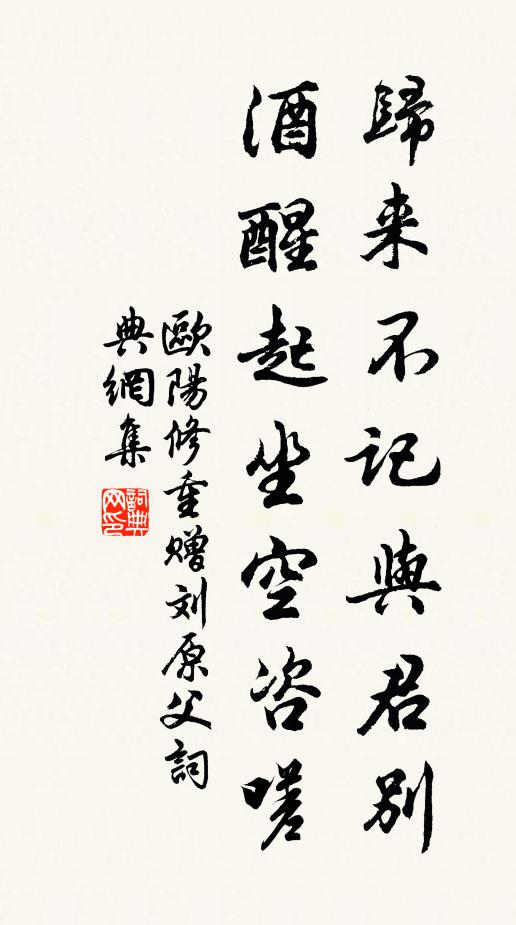 歸来不记與君别
酒醒起坐空咨嗟
歐陽修重赠刘原父詞
典網集
詞典网印